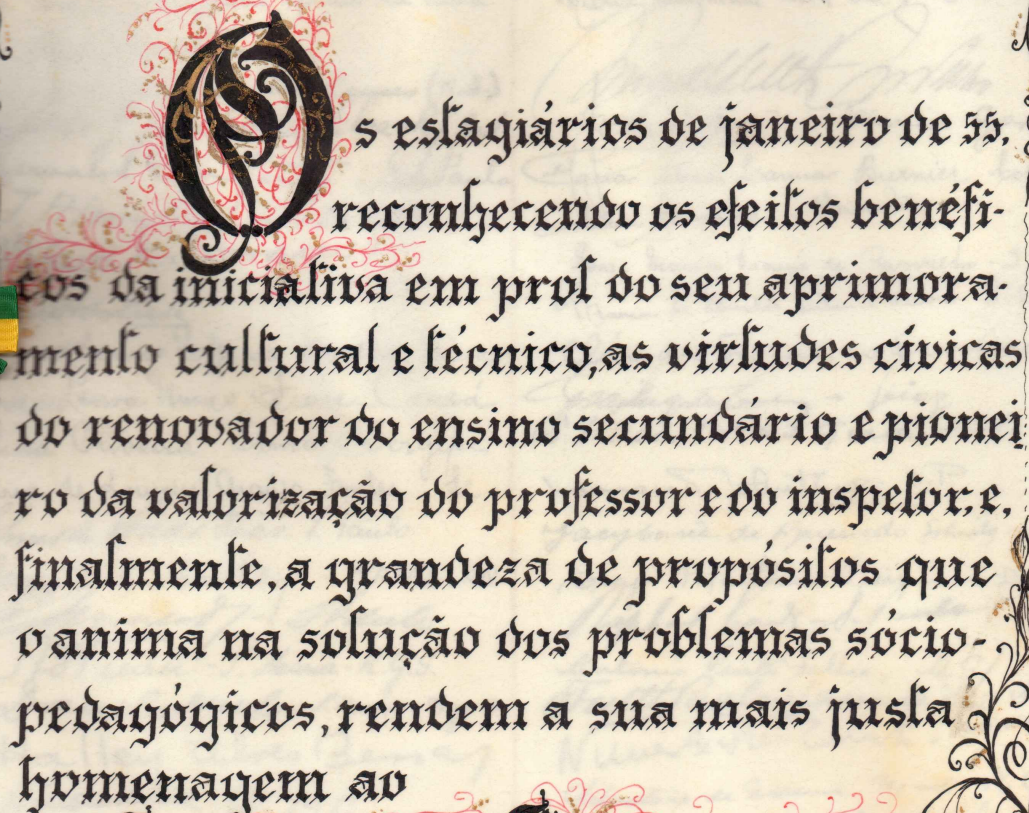 Os estagiários de janeiro de 55,
reconhecendo os efeitos benéfi-
cos da iniciativa em prol do seu aprimora-
mento cultural e técnico, as virtudes cívicas
do renovador do ensino secundário e pionei
ro da valorização do professor e do inspetor, e,
finalmente, a grandeza de propósitos que
o anima na solução dos problemas sócio-
pedagógicos, rendem a sua mais justa
homenagem ao